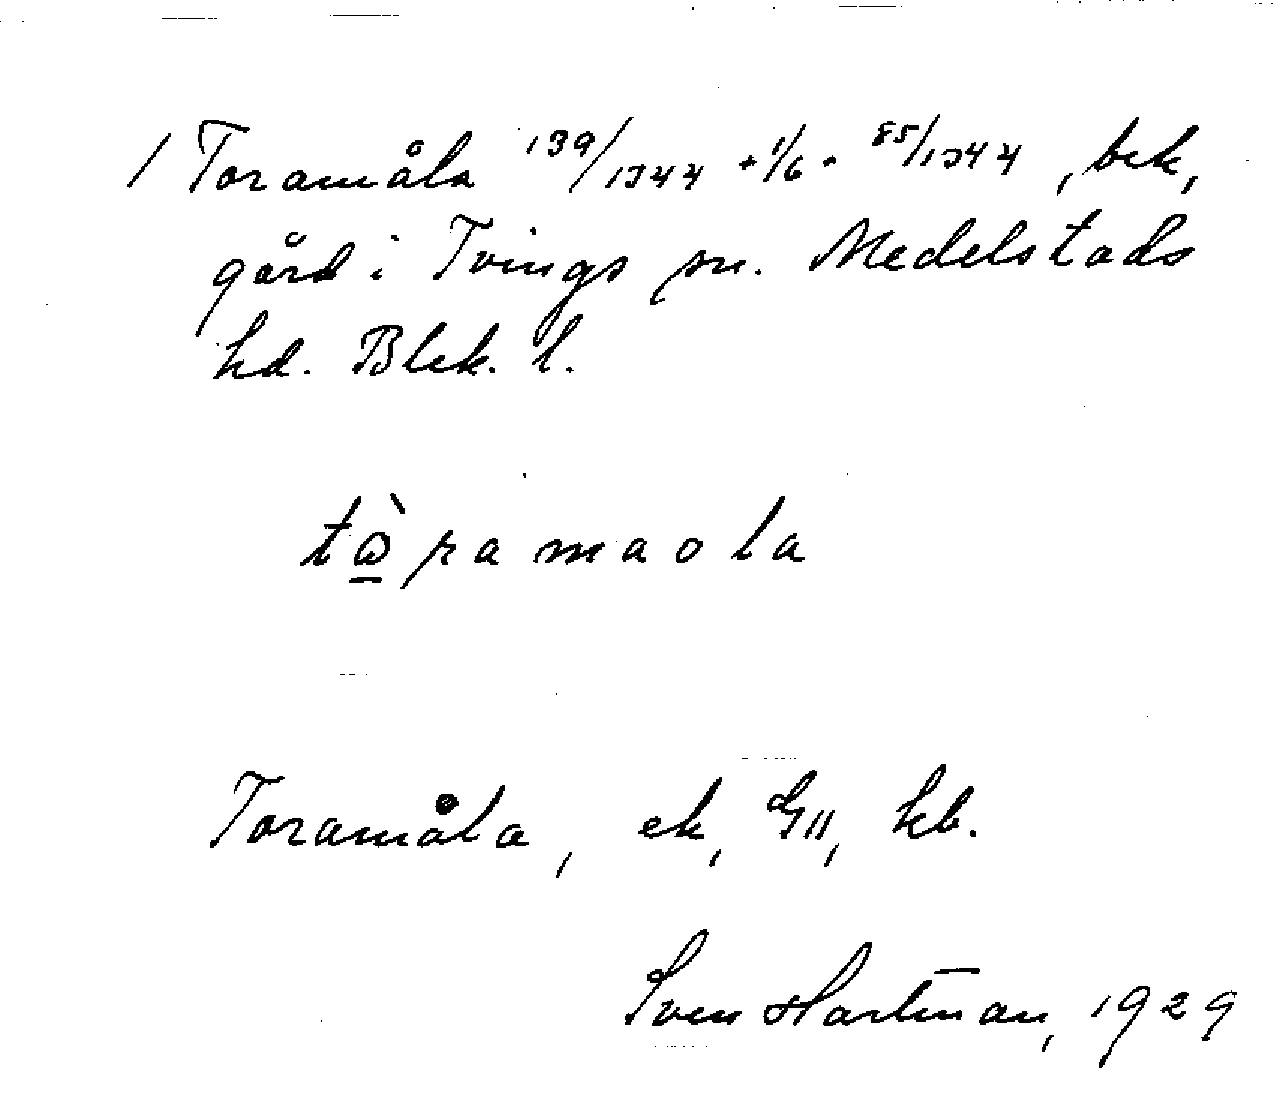 / Toramåla 139/1344 + 1/6 + 85/1344, bek,
gård i Tvings sn. Medelstads
hd. Blek. l.
tɷ̱̀ramaola
Toramåla, ek, GII, kb.
Sven Hartman, 1929